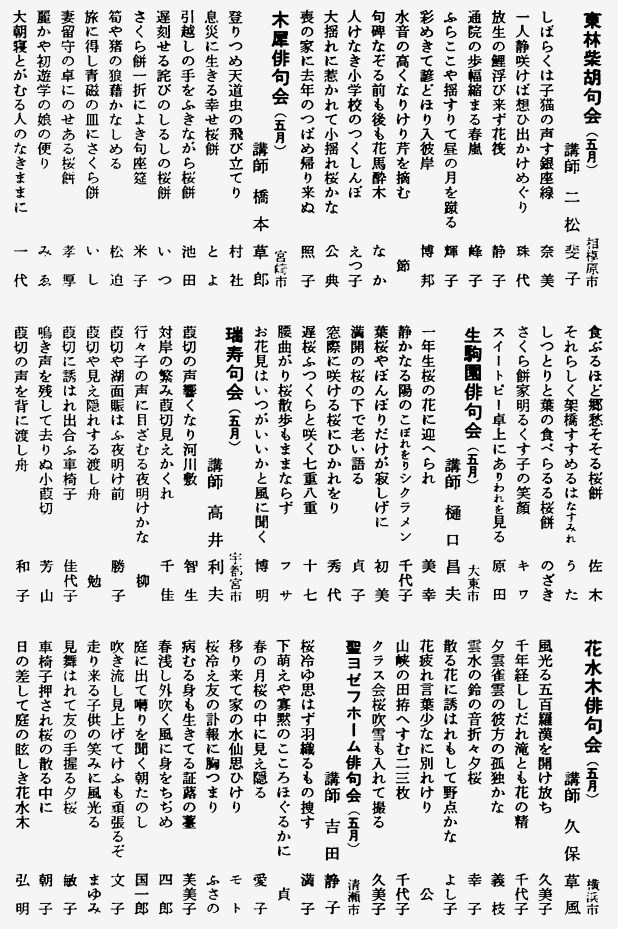 東林柴胡句会（五月）
相模原市
講師　二松　斐子
しばらくは子猫の声す銀座線　奈美
一人静咲けば想ひ出かけめぐり　珠代
放生の鯉浮び来ず花筏　静子
通院の歩幅縮まる春嵐　峰子
ふらここや揺すりて昼の月を蹴る　輝子
彩めきて諺どほり入彼岸　博邦
水音の高くなりけり芹を摘む　節
句碑なぞる前も後も花馬酔木　なか
人けなき小学校のつくしんぼ　えつ子
大揺れに惹かれて小揺れ桜かな　公典
喪の家に去年のつばめ帰り来ぬ　照子
木犀俳句会（五月）
宮崎市
講師　橋本　草郎
登りつめ天道虫の飛び立てり　村社
息災に生きる幸せ桜餅　とよ
引越しの手をふきながら桜餅　池田
遅刻せる詫びのしるしの桜餅　いつ
さくら餅一折によき句座筵　米子
筍や猪の狼藉かなしめる　松迫
旅に得し青磁の皿にさくら餅　いし
妻留守の卓にのせある桜餅　孝厚
麗かや初遊学の娘の便り　みゑ
大朝寝とがむる人のなきままに　一代
食ぶるほど郷愁そそる桜餅　佐木
それらしく架橋すすめるはなすみれ　うた
しつとりと葉の食べらるる桜餅　のざき
さくら餅家明るくす子の笑顔　キワ
スイートピー卓上にありわれを見る　原田
生駒園俳句会（五月）
大東市
講師　樋口　昌夫
一年生桜の花に迎へられ　美幸
静かなる陽のこぼれをりシクラメン　千代子
葉桜やぼんぼりだけが寂しげに　初美
満開の桜の下で老い語る　貞子
窓際に咲ける桜にひかれをり　秀代
遅桜ふつくらと咲く七重八重　十七
腰曲がり桜散歩もままならず　フサ
お花見はいつがいいかと風に聞く　博明
瑞寿句会（五月）
宇都宮市
講師　高井　利夫
葭切の声響くなり河川敷　智生
対岸の繁み葭切見えかくれ　千佳
行々子の声に目ざむる夜明けかな　柳
葭切や湖面賑はふ夜明け前　勝子
葭切や見え隠れする渡し舟　勉
葭切に誘はれ出合ふ車椅子　佳代子
鳴き声を残して去りぬ小葭切　芳山
葭切の声を背に渡し舟　和子
花水木俳句会（五月）
横浜市
講師　久保　草風
風光る五百羅漢を開け放ち　久美子
千年経ししだれ滝とも花の精　千代子
夕雲雀雲の彼方の孤独かな　義枝
雲水の鈴の音折々夕桜　幸子
散る花に誘はれもして野点かな　よし子
花疲れ言葉少なに別れけり　公
山峡の田拵へすむ二三枚　千代子
クラス会桜吹雪も入れて撮る　久美子
聖ヨゼフホーム俳句会（五月）
清瀬市
講師　吉田　静子
桜冷ゆ思はず羽織るもの捜す　満子
下萌えや寡黙のこころほぐるかに　貞
春の月桜の中に見え隠る　愛子
移り来て家の水仙思ひけり　モト
桜冷え友の訃報に胸つまり　ふさの
病む身も生きてる証蕗の薹　芙美子
春浅し外吹く風に身をちぢめ　四郎
庭に出て囀りを聞く朝たのし　国一郎
吹き流し見上げてけふも頑張るぞ　文子
走り来る子供の笑みに風光る　まゆみ
見舞はれて友の手握る夕桜　敏子
車椅子押され桜の散る中に　朝子
日の差して庭の眩しき花水木　弘明